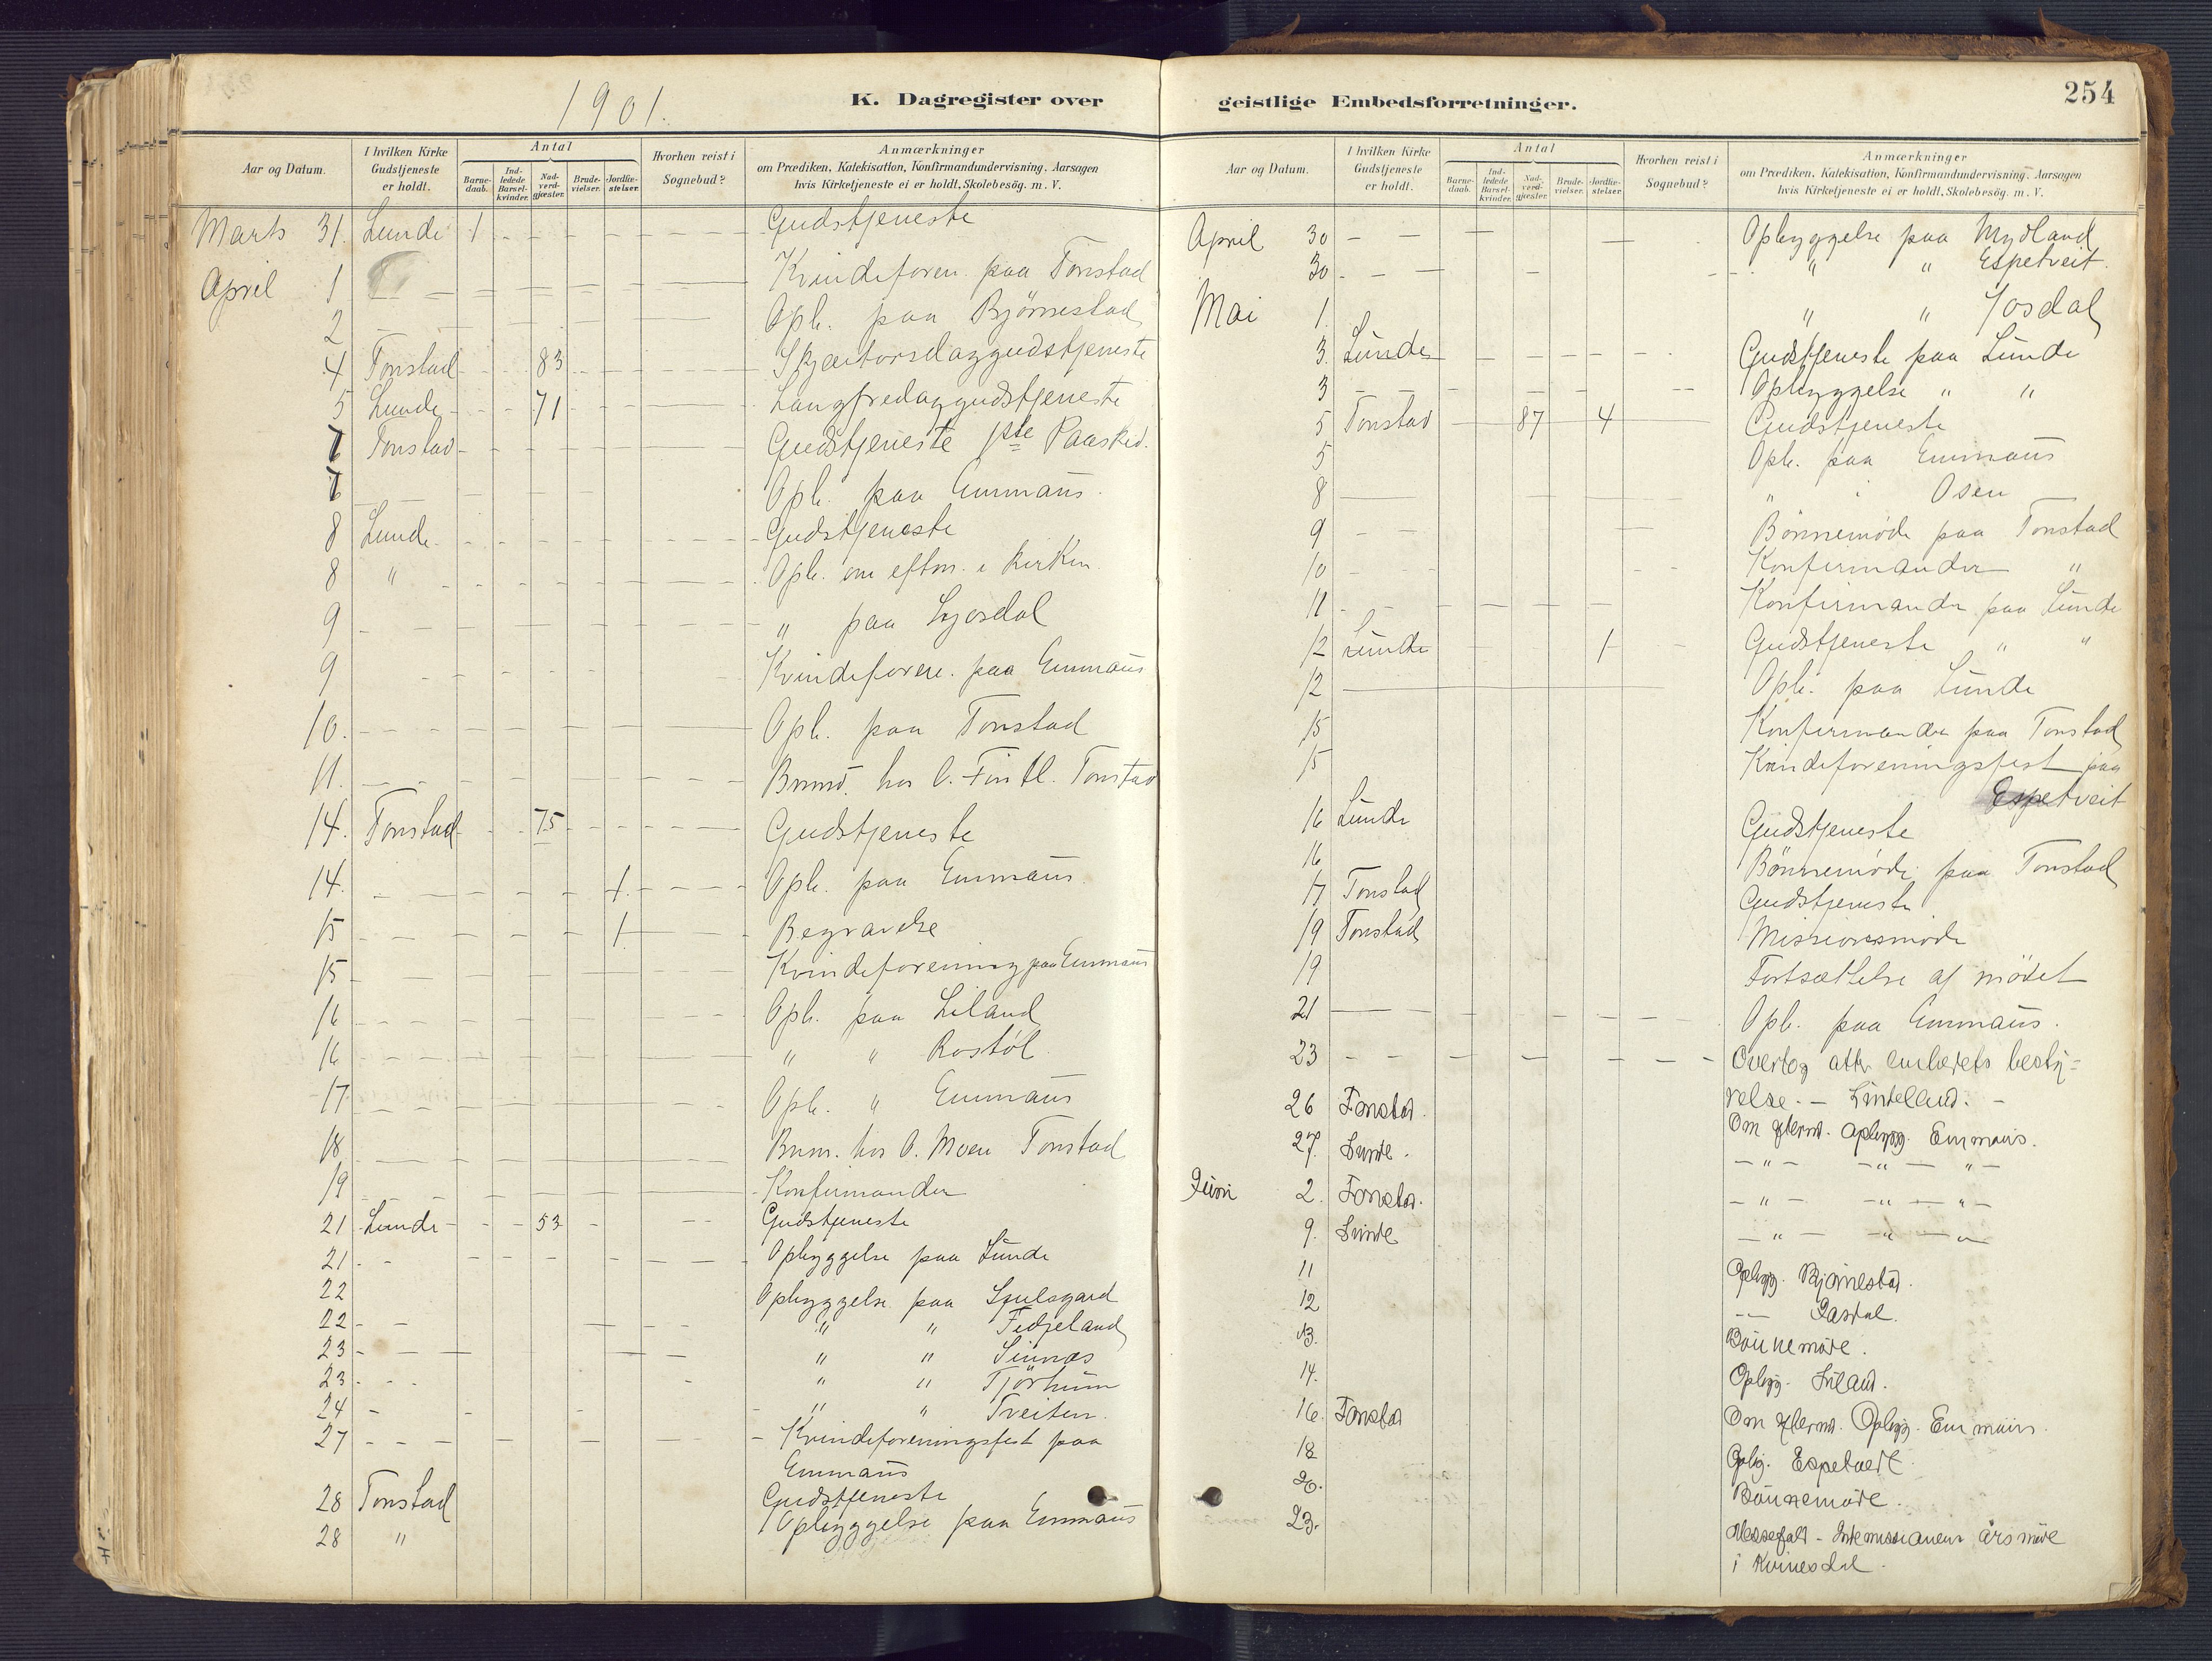 1901.
K. Dagregister over
Aar og Datum.
I hvilken Kirke Gudstjeneste er holdt.
Antal
Barne-daab.
Ind-ledede Barsel-kvinder.
Nad-verd-gjæster.
Brude-vielser.
Jordfæ-stelser.
Hvorhen reist i Sognebud?
Anmærkninger
om Prædiken, Katekisation, Konfirmandundervisning, Aarsagen
hvis Kirketjeneste ei er holdt, Skolebesög. m. V.
Marts 31. Lunde 1 Gudstjeneste
April 1 Kvindeforen. paa Tonstad
2 Opb. paa Bjørnestad
4 Tonstad 83 Skjærtorsdaggudstjeneste
5 Lunde 71 Langfredaggudstjeneste
7 Tonstad Gudstjeneste 1ste Paasked.
7 Opb. paa Emmaus.
8 Lunde Gudstjeneste
8 " Opb. om eftm. i Kirken.
9 " paa Ljosdal
9 Kvindeforen. paa Emmaus
10. Opb. paa Tonstad
11. Bmmö. hos O. Fintl. Tonstad
14. Tonstad 75 Gudstjeneste
14. 1. Opb. paa Emmaus.
15 1. Begravelse
15 Kvindeforening paa Emmaus
16 Opb. paa Liland
16 " " Rostöl
17 Opb. " Emmaus
18 Bmm. hos O. Moen Tonstad
19 Konfirmander
21 Lunde 53 Gudstjeneste
21 Opbyggelse paa Lunde
22 Opbyggelse paa
22 " " Fidjeland
23 " " Sinnes
23 " " Tjörhum
24 " " Tveiten.
27 Kvindeforeningsfest paa
Emmaus
28 Tonstad Gudstjeneste
28 " Opbyggelse paa Emmaus
geistlige Embedsforretninger.
254
Aar og Datum.
I hvilken Kirke Gudstjeneste er holdt.
Antal
Barne-daab.
Ind-ledede Barsel-kvinder.
Nad-verd-gjæster.
Brude-vielser.
Jordfæ-stelser.
Hvorhen reist i Sognebud?
Anmærkninger
om Prædiken, Katekisation, Konfirmandundervisning, Aarsagen
hvis Kirketjeneste ei er holdt, Skolebesög. m. V.
April 30 Opbyggelse paa Mydland
30 " " Espetveit.
Mai 1. " " Josdal
3. Lunde Gudstjeneste paa Lunde
3 Opbyggelse " "
5 Tonstad 87 4 Gudstjeneste
5 Opb. paa Emmaus
8 " i Osen
9 Bönnemöde paa Tonstad
10 Konfirmander "
11 Konfirmander paa Lunde
12 Lunde 1 Gudstjeneste " "
12 Opb. paa Lunde
15 Konfirmander paa Tonstad
15 Kvindeforeningsfest paa
Espetveit
16 Lunde Gudstjeneste
16 Bönnemöde paa Tonstad
17 Tonstad Gudstjeneste
19 Tonstad Missionsmöde
19 Fortsættelse af mödet
21 Opb. paa Emmaus.
23 Overtog atter embedets besty=
relse. – Lintelland. –
26 Tonstad. Om efterm. Opbygg. Emmaus.
27. Lunde. – " – – " – " –
Juni 2. Tonstad. – " – – " – " –
9. Lunde – " – – " – " –
11 Opbygg. Bjønestad.
12 – " – Josdal.
13. Bönnemöde.
14. Opbygg. Liland.
16. Tonstad Om efterm. Opbygg. Emmaus.
18 Opbyg. Espetvedt
20. Bönnemöde.
23. Messefald – Indremissionens årsmöde
i Kvinesdal.